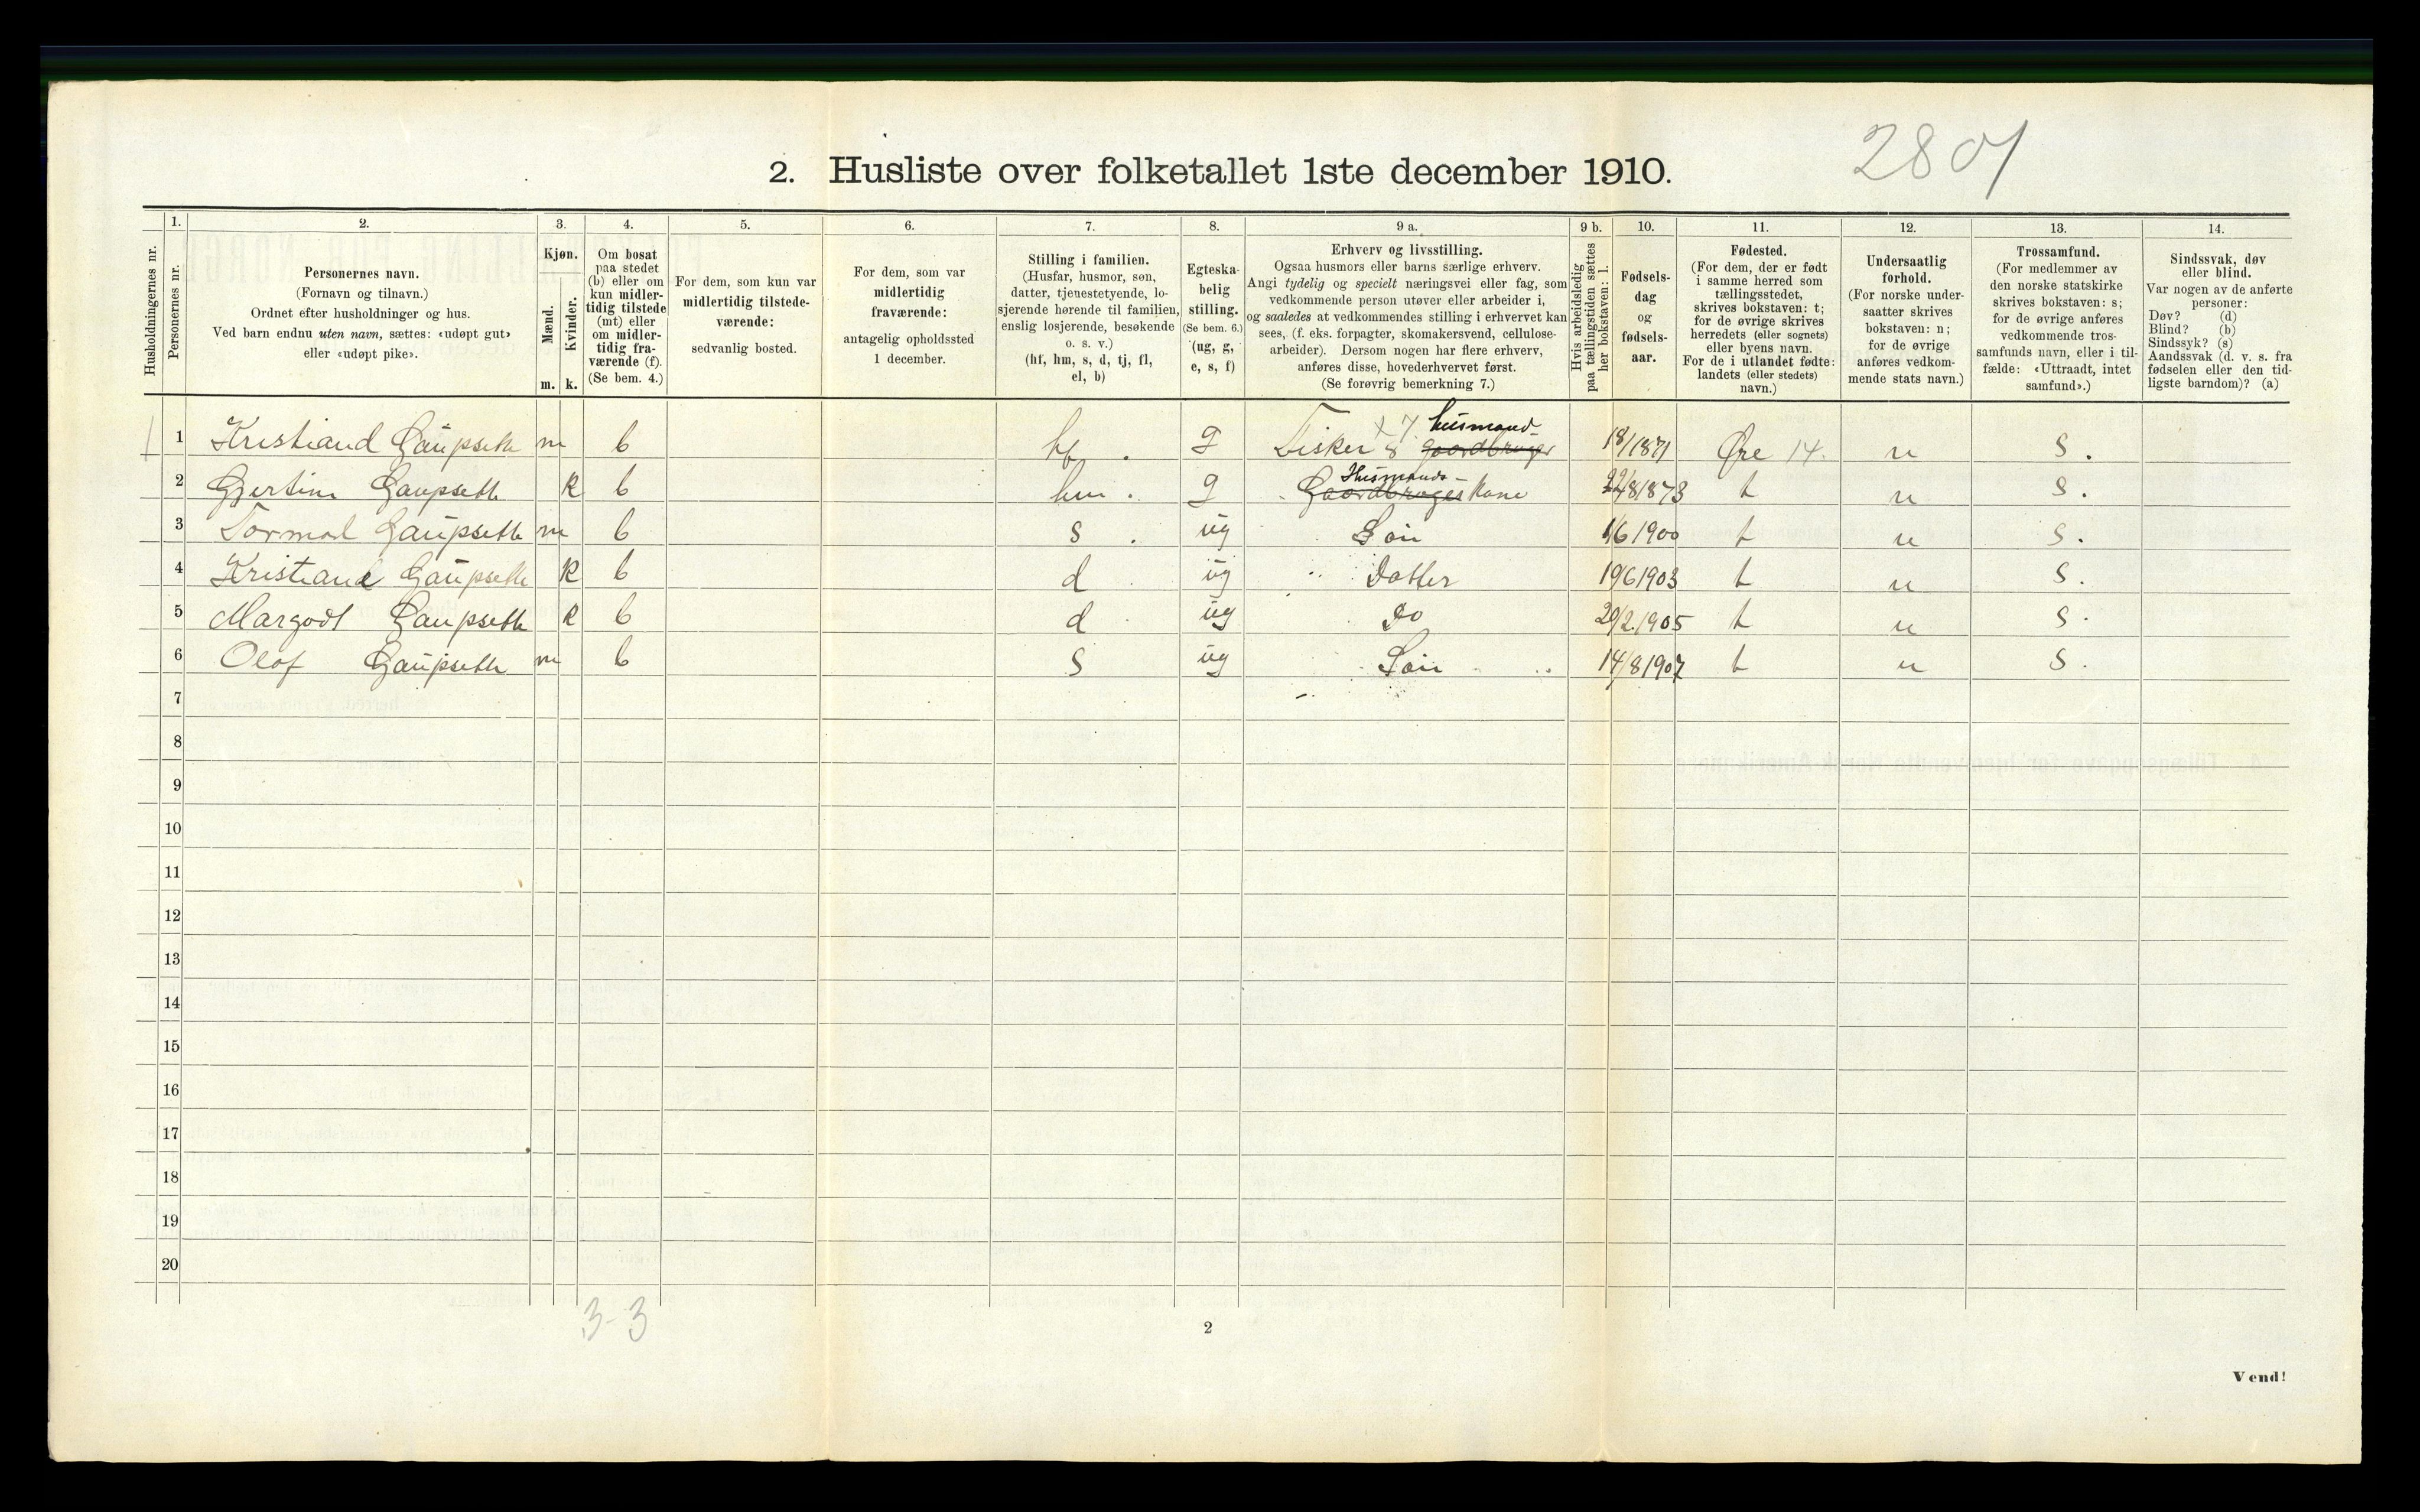 2801
2. Husliste over folketallet 1ste december 1910.
1. 2. 3. 4. 5. 6. 7. 8. 9 a. 9 b. 10. 11. 12. 13. 14.
Husholdningernes nr.
Personernes nr.
Personernes navn.
(Fornavn og tilnavn.)
Ordnet efter husholdninger og hus.
Ved barn endnu uten navn, sættes: «udøpt gut»
eller «udøpt pike».
Kjøn.
Mænd.
Kvinder.
m. k.
Om bosat
paa stedet
(b) eller om
kun midler-
tidig tilstede
(mt) eller
om midler-
tidig fra-
værende (f).
(Se bem. 4.)
For dem, som kun var
midlertidig tilstede-
værende:
sedvanlig bosted.
For dem, som var
midlertidig
fraværende:
antagelig opholdssted
1 december.
Stilling i familien.
(Husfar, husmor, søn,
datter, tjenestetyende, lo-
sjerende hørende til familien,
enslig losjerende, besøkende
o. s. v.)
(hf, hm, s, d, tj, fl,
el, b)
Egteska-
belig
stilling.
(Se bem. 6.)
(ug, g,
e, s, f)
Erhverv og livsstilling.
Ogsaa husmors eller barns særlige erhverv.
Angi tydelig og specielt næringsvei eller fag, som
vedkommende person utøver eller arbeider i,
og saaledes at vedkommendes stilling i erhvervet kan
sees, (f. eks. forpagter, skomakersvend, cellulose-
arbeider). Dersom nogen har flere erhverv,
anføres disse, hovederhvervet først.
(Se forøvrig bemerkning 7.)
Hvis arbeidsledig
paa tællingstiden sættes
her bokstaven: l.
Fødsels-
dag
og
fødsels-
aar.
Fødested.
(For dem, der er født
i samme herred som
tællingsstedet,
skrives bokstaven: t;
for de øvrige skrives
herredets (eller sognets)
eller byens navn.
For de i utlandet fødte:
landets (eller stedets)
navn.)
Undersaatlig
forhold.
(For norske under-
saatter skrives
bokstaven: n;
for de øvrige
anføres vedkom-
mende stats navn.)
Trossamfund.
(For medlemmer av
den norske statskirke
skrives bokstaven: s;
for de øvrige anføres
vedkommende tros-
samfunds navn, eller i til-
fælde: «Uttraadt, intet
samfund».)
Sindssvak, døv
eller blind.
Var nogen av de anførte
personer:
Døv? (d)
Blind? (b)
Sindssyk? (s)
Aandssvak (d. v. s. fra
fødselen eller den tid-
ligste barndom)? (a)
husmand
1 Kristiand Gaupseth m b hf . g Fisker & gaardbruger 18/1871 Øre 14. n s.
Husmands-
2 Gjertine Gaupseth k b hm . g Gaardbruges Kone 22/8 1873 t n s.
3 Tormod Gaupseth m b s . ug Søn 1/6 1900 t n s.
4 Kristiane Gaupseth k b d ug Datter 19/6 1903 t n s.
5 Margodt Gaupseth k b d ug Do 20/2 1905 t n s.
6 Olaf Gaupseth m b s ug Søn 14/8 1907 t n s.
7
8
9
10
11
12
13
14
15
16
17
18
19
20
3-3
2
Vend!